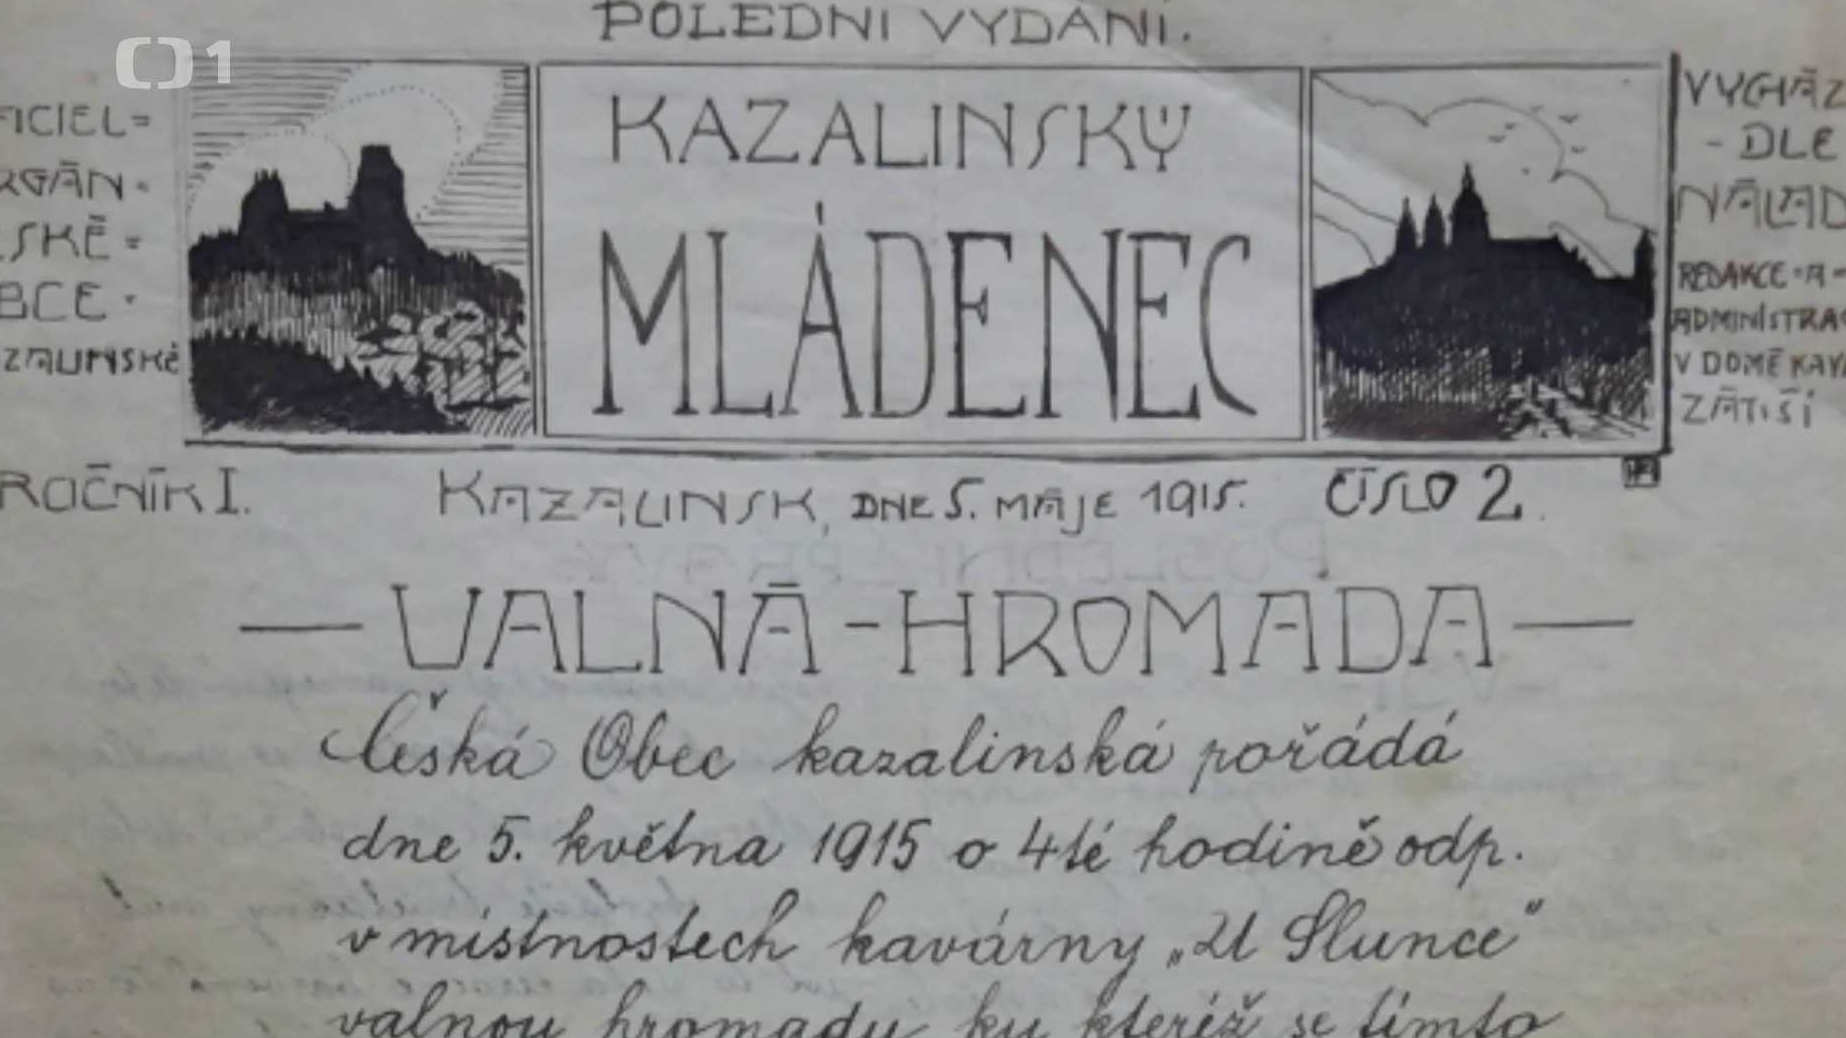 POLEDNÍ VYDÁNÍ.
ČT1
FICIEL=
RGÁN·
ESKÉ=
BCE·
ZALINSKÉ
KAZALINSKÝ
MLÁDENEC
VYCHÁZ
-DLE
NÁLAD
REDAKCE·A-
ADMINISTRAC
V DOMĚ KAVÁ
ZÁTIŠÍ
ROČNÍK I. KAZALINSK, DNE 5. MÁJE 1915. ČÍSLO 2.
— VALNÁ-HROMADA —
Česká Obec kazalinská pořádá
dne 5. května 1915 o 4té hodině odp.
v místnostech kavárny „U Slunce"
valnou hromadu ku kteréž se tímto